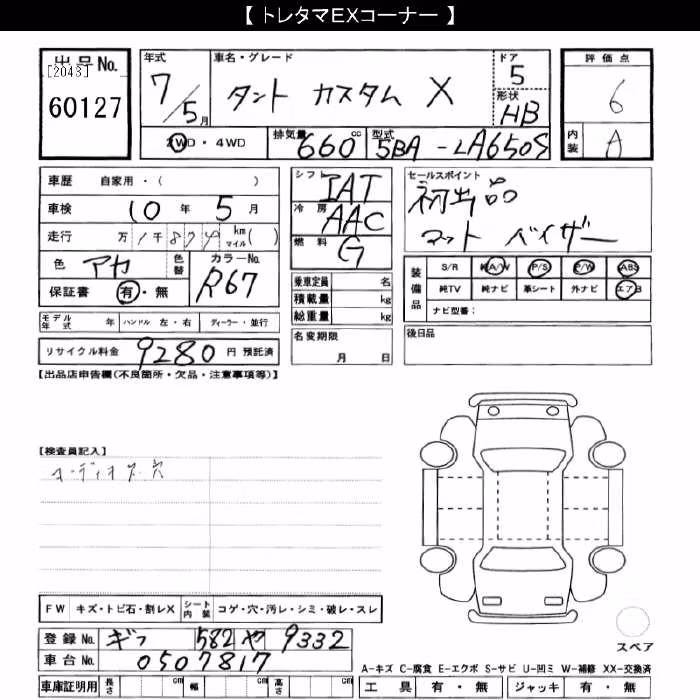 【 トレタマEXコーナー 】
出品No.
[2043]
60127
年式
7/5月
車名・グレード
タント カスタム X
ドア
5
形状
HB
評価点
6
内装
A
2WD・4WD
排気量
660cc
型式
5BA-LA650S
車歴 自家用・( )
車検 10年5月
走行 万1千874 km マイル( )
色 アカ
色替
カラーNo.
R67
保証書 有・無
シフト
IAT
冷房
AAC
燃料
G
乗車定員 名
積載量 kg
総重量 kg
セールスポイント
初出品
マット バイザー
装備品
S/R 純A/W P/S P/W ABS
純TV 純ナビ 革シート 外ナビ エアB
ナビ型番:
モデル年式 年 ハンドル 左・右 ディーラー・並行
名変期限
月 日
後日品
リサイクル料金 9280 円 預託済
【出品店申告欄(不良箇所・欠品・注意事項等)】
【検査員記入】
オーディオレス穴
FW キズ・トビ石・割レX シート内装 コゲ・穴・汚レ・シミ・破レ・スレ
登録No. ギフ 582 や 9332
車台No. 0507817
スペア
A-キズ C-腐食 E-エクボ S-サビ U-凹ミ W-補修 XX-交換済
車庫証明用 長さ cm 幅 cm 高さ cm
工具 有・無 ジャッキ 有・無